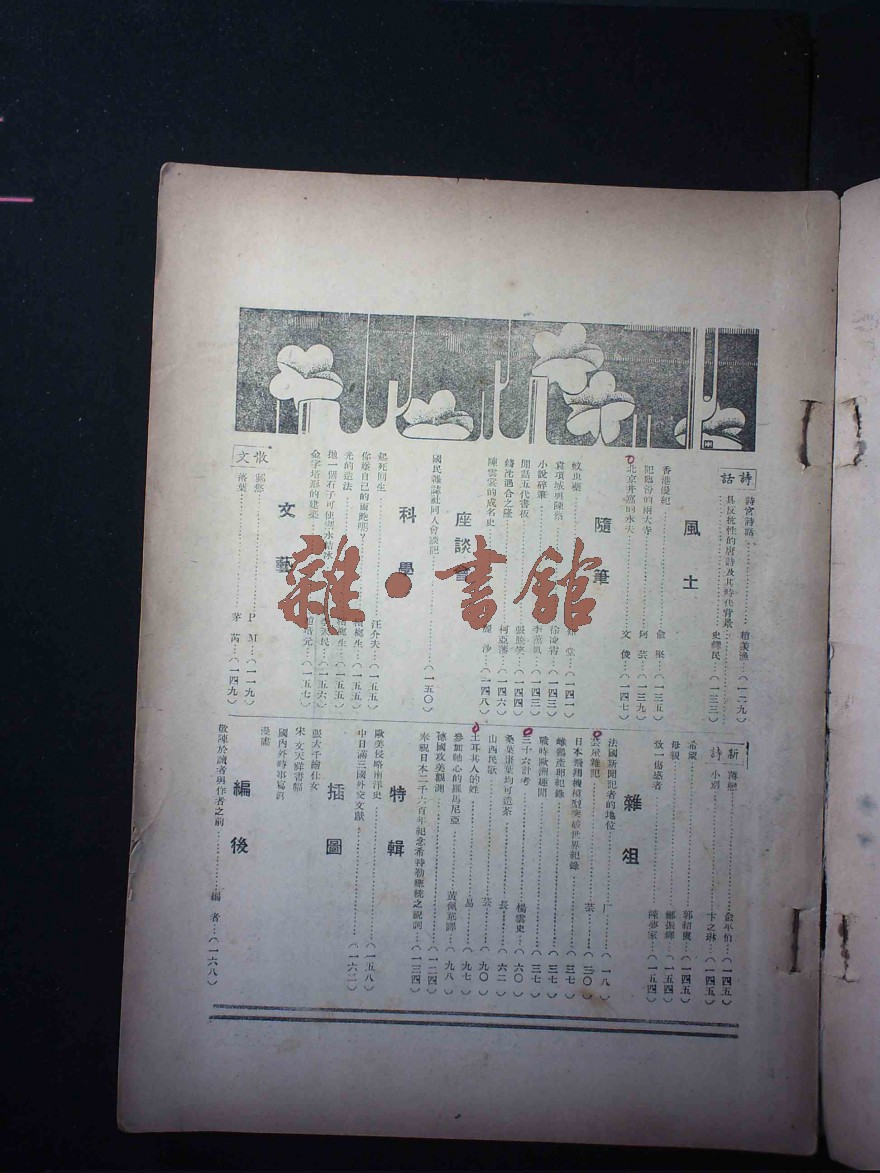 詩話
詩宮詩話
趙羨漁…(一二九)
具反抗性的唐詩及其時代背景
史輝民…(一三三)
風土
香港漫紀
俞堅…(一三五)
記臨汾的兩大寺
阿芸…(一三九)
北京井窩的水夫
文俊…(一四七)
隨筆
蚊虫藥
堂…(一四一)
袁項城與陳
徐凌霄…(一四三)
小說碎筆
李薰風…(一四三)
閒話五代書板
張脇笑…(一四四)
錢沈遇合之隆
柯亞藩…(一四六)
陳雲裳的成名史
沙…(一四八)
座談會
國民雜誌社同人會談記
(一五〇)
科學
起死回生
汪介夫…(一五五)
生…(一五五)
光的造法
生…(一五五)
拋一個石子可使湖水結冰
民…(一五六)
金字塔形的建築
培元…(一五七)
文藝
散文
鄉愁
P M…(一一九)
落葉
茅芮…(一四九)
新詩
薄戀
俞平伯…(一四五)
小別
卞之琳…(一四五)
希望
郭紹虞…(一四五)
母親
鄭振鐸…(一五四)
致一傷感者
陳夢家…(一五四)
雜俎
法國新聞記者的地位
厂…(一八)
芸窗雜記
芸…(三〇)
日本飛翔機模型突破世界紀錄
(三七)
雌鷄產卵紀錄
(三七)
戰時歐洲趣聞
(三七)
三十六計考
楊雲史…(六〇)
桑葉棗葉均可造茶
長…(六二)
山西民歌
芸…(九〇)
土耳其人的姓
易…(九七)
參加軸心的羅馬尼亞
黃佩萱譯…(九八)
德國攻美觀測
(一二四)
奉祝日本二千六百年紀念希特勒總統之祝詞
(一三四)
特輯
歐美侵略南洋史
(一五八)
中日滿三國外交文獻
(一六二)
插圖
張大千繪仕女
宋文天祥書幅
國內外時事寫眞
漫畫
編後
敬陳於讀者與作者之前
編者…(一六八)
雜·書館